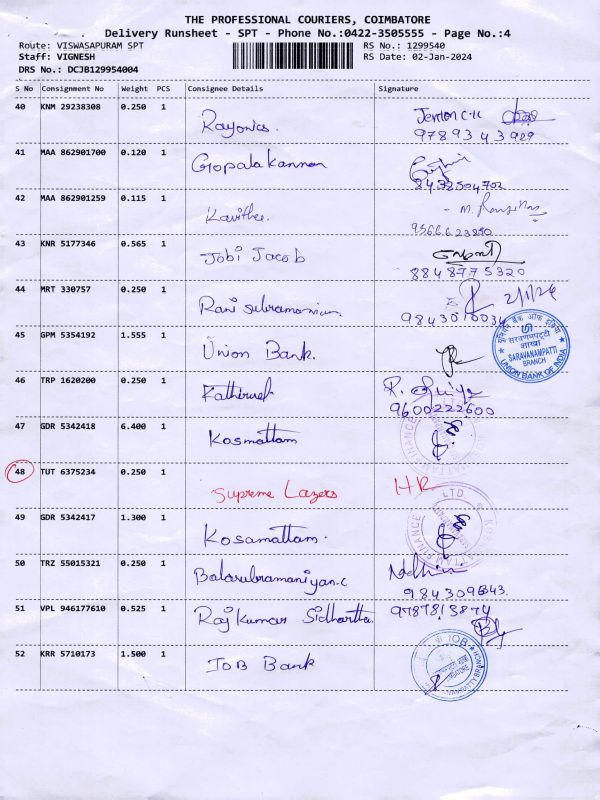 THE PROFESSIONAL COURIERS, COIMBATORE
Delivery Runsheet - SPT - Phone No.:0422-3505555 - Page No.:4
Route: VISWASAPURAM SPT RS No.: 1299540
Staff: VIGNESH RS Date: 02-Jan-2024
DRS No.: DCJB129954004
S No Consignment No Weight PCS Consignee Details Signature
40 KNM 29238308 0.250 1
Rayonics. Jenton C.K
9789343929
41 MAA 862901700 0.120 1
Gopala kannan
8432504702
42 MAA 862901259 0.115 1
Kavithee.
9566623850
43 KNR 5177346 0.565 1
Jobi Jacob
8848775320
44 MRT 330757 0.250 1
Ravi subramanian 2/1/24
9843010034
45 GPM 5354192 1.555 1
Union Bank.
यूनियन बैंक ऑफ इंडिया
सरवणमपट्टी
शाखा
SARAVANAMPATTI
BRANCH
UNION BANK OF INDIA
46 TRP 1620200 0.250 1
Kathirvel
9600222600
47 GDR 5342418 6.400 1
Kosmattam
FINANCE
48 TUT 6375234 0.250 1
Supreme Lazers HR
LTD.
49 GDR 5342417 1.300 1
Kosamattam.
FINANCE
50 TRZ 55015321 0.250 1
Balasubramaniyan.c
51 VPL 946177610 0.525 1
Raj kumar Sidhartta. 9787813874
52 KRR 5710173 1.500 1
IOB Bank
IOB